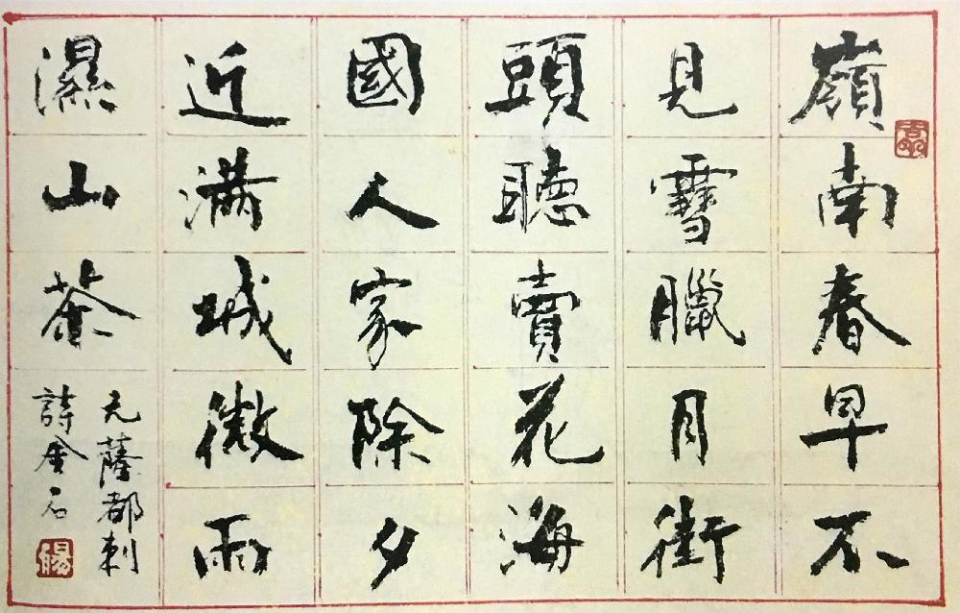 嶺南春早不
見雪臘月街
頭聽賣花海
國人家除夕
近满城微雨
濕山茶
元薩都剌
詩金石